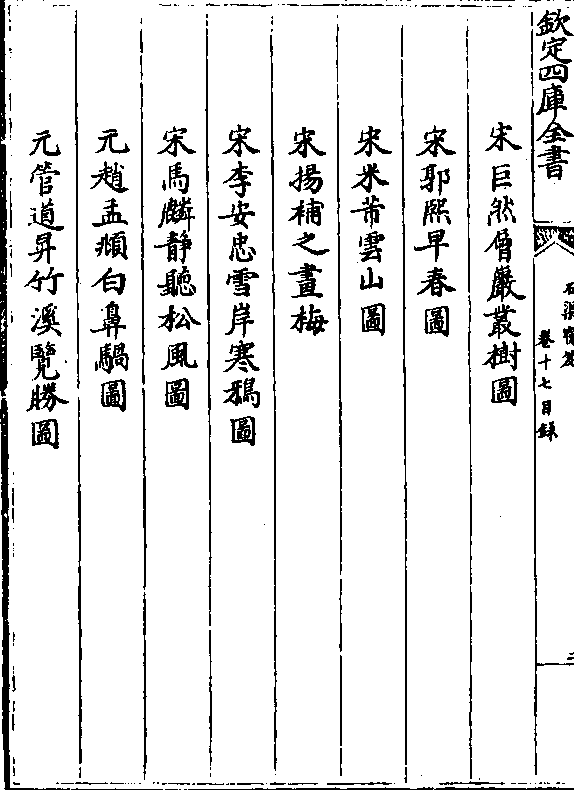 欽定四庫全書
卷十七目錄
宋巨然僧巖叢樹圖
宋郭熙早春圖
宋米芾雲山圖
宋揚補之畫梅
宋李安忠雪岸寒鴉圖
宋馬麟靜聽松風圖
元趙孟頫白鼻騧圖
元管道昇竹溪覽勝圖